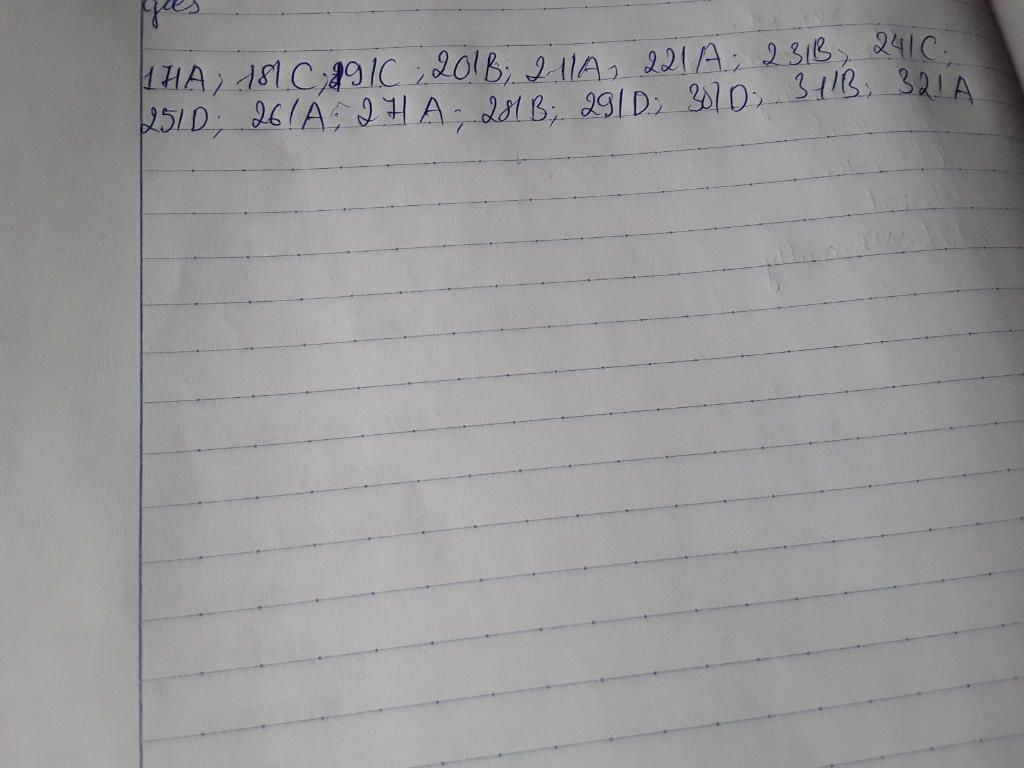 17/A; 18/C; 19/C; 20/B; 21/A, 22/A; 23/B; 24/C;
25/D; 26/A; 27/A; 28/B; 29/D; 30/D; 31/B; 32/A